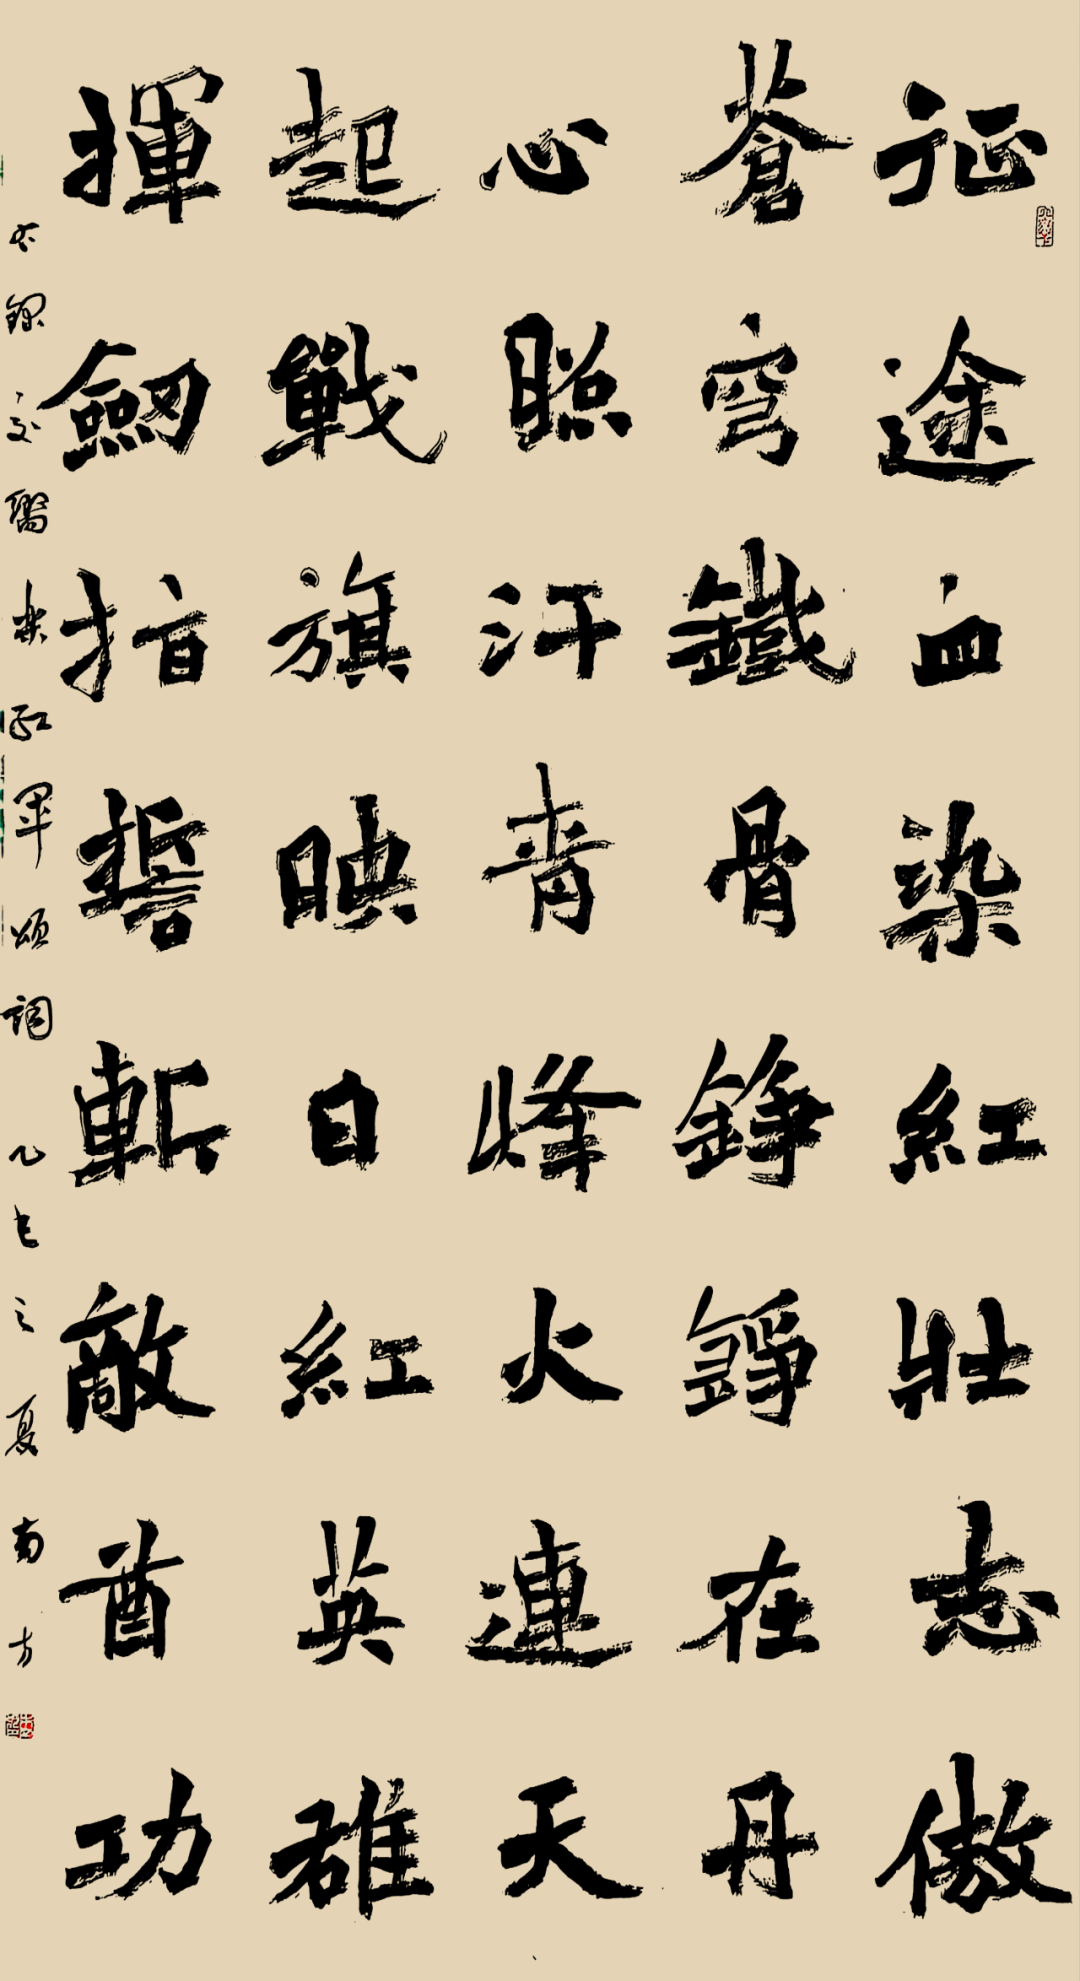 征途血染紅壯志傲
蒼穹鐵骨錚錚在丹
心照汗青烽火連天
起戰旗映日紅英雄
揮劒指誓斬敵酋功
右錄交響曲紅軍頌詞 乙巳之夏南方